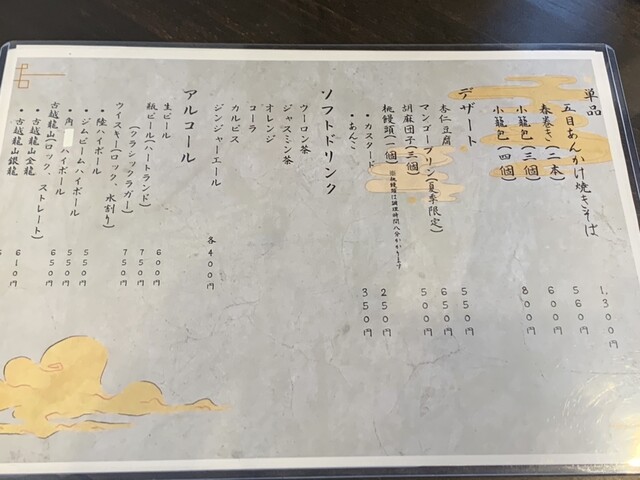 単品
五目あんかけ焼きそば 1,300円
春巻き(二本) 560円
小籠包(三個) 600円
小籠包(四個) 800円
デザート
杏仁豆腐 550円
マンゴープリン(夏季限定) 650円
胡麻団子(三個) 500円
桃饅頭(一個) ※桃饅頭は調理時間八分かかります
・カスタード 250円
・あんこ 350円
ソフトドリンク
ウーロン茶
ジャスミン茶
オレンジ
コーラ
カルピス
ジンジャーエール 各400円
アルコール
生ビール 600円
瓶ビール(ハートランド) 750円
(クラシックラガー) 750円
ウイスキー(ロック、水割り)
・陸ハイボール 550円
・ジムビームハイボール 550円
・角 ハイボール 650円
古越龍山(ロック、ストレート)
・古越龍山金龍 610円
・古越龍山銀龍